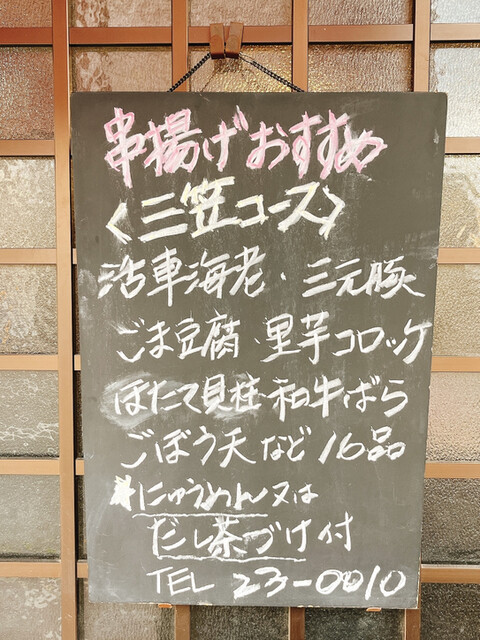 串揚げおすすめ
<三笠コース>
活車海老・三元豚
ごま豆腐・里芋コロッケ
ほたて貝柱・和牛ばら
ごぼう天など16品
にゅうめん又は
だし茶づけ付
TEL 23-0010